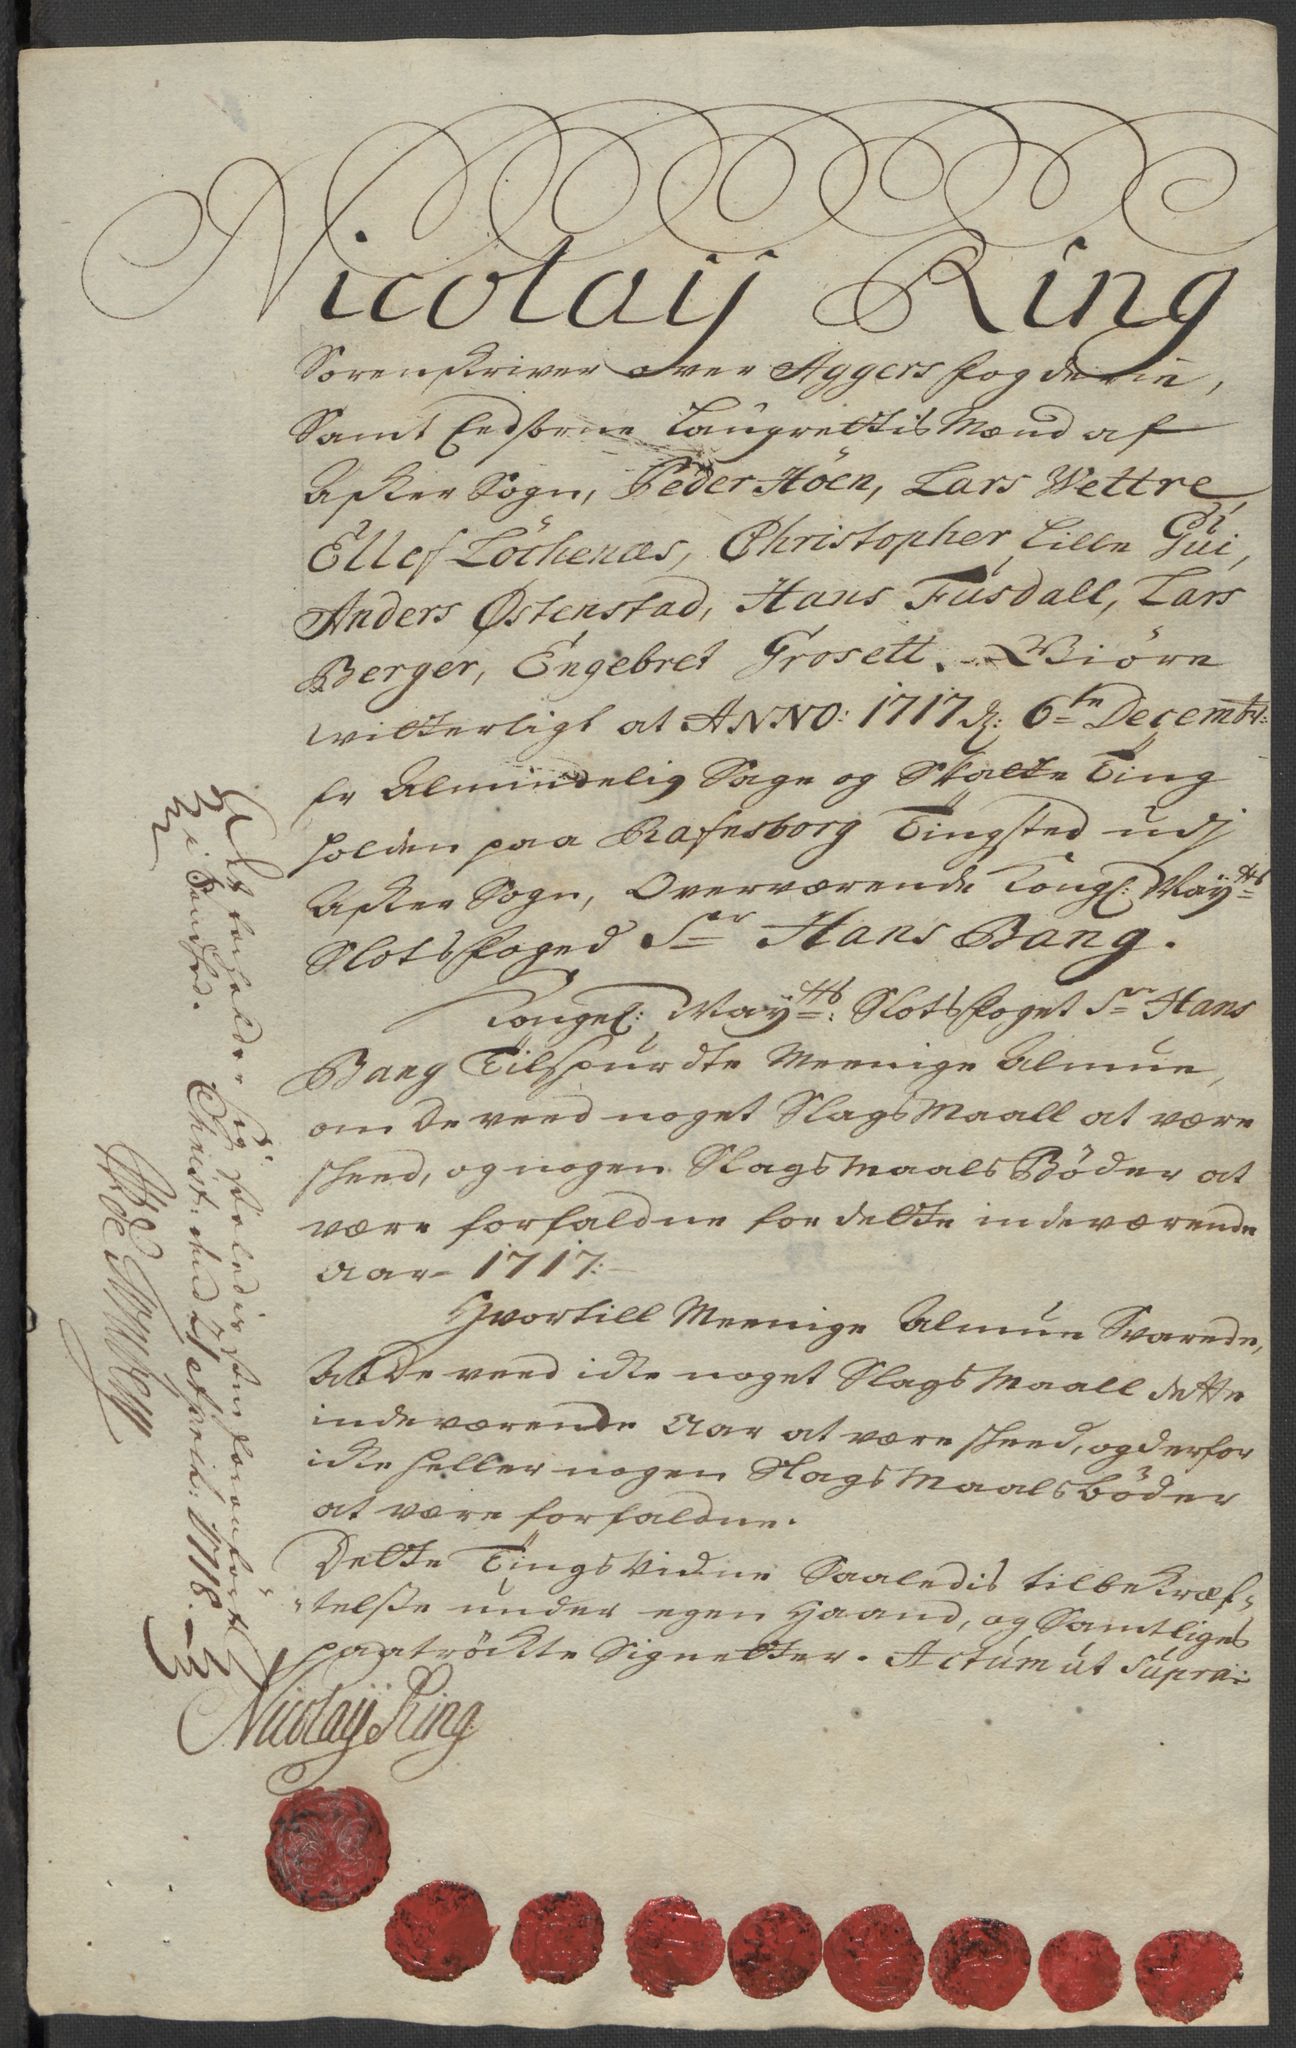 Nicolaij Ring
Sorenskriver over Aggers fogderie,
Samt Eedsorne Laugrettis Mænd af
Asker Sogn, Peder Höen, Lars Wettre
Ellef Löchenæs, Christopher Lille Gui,
Anders Østenstad, Hans Fusdall, Lars
Berger, Engebret Grosett. Giöre
witterligt at ANNO: 1717 d: 6te Decembr:
er Almindelig Sage og Skatte Ting
holden paa Rafnsborg Tingsted udj
Asker Sogn, Overværende Kongl: Mayts
Slotsfoged Sr Hans Bang.
Kongel: Mayts: Slotsfoget Sr Hans
Bang Tilspurdte Meenige Almue,
om de veed noget Slags Maall at være
skeed, og nogen Slags Maals Bøder at
være forfaldne for dette indeværende
Aar 1717:
Hvortill Meenige Almue Svarede,
At De veed icke noget Slags Maall dette
indeværende Aar at være skeed, og derfor
icke heller nogen Slags Maals bøder
at være forfaldne.
Dette Tings Vidne Saaledis til bekræf-
telsse under egen Haand, og Samtliges
paatröckte Signetter. Actum ut supra:
Nicolaij Ring
At forholder sig saaledis som foranfört
Christ: den 21 April: 1718.